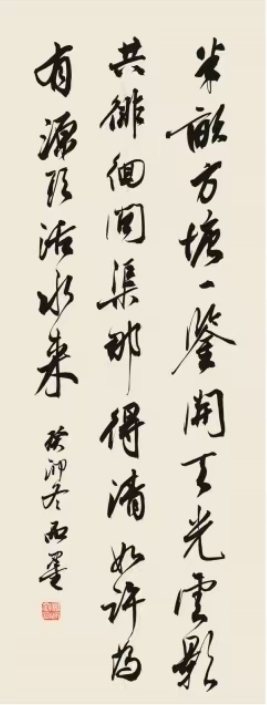 半畝方塘一鑒開天光雲影
共徘徊問渠那得清如許為
有源頭活水來
癸卯冬 石墨